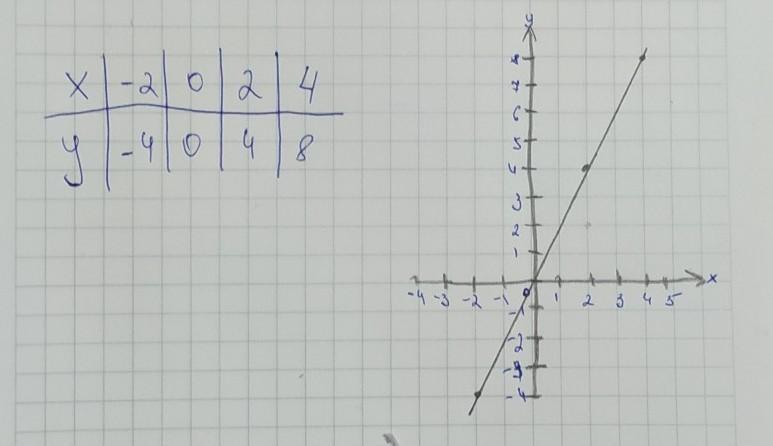 x -2 0 2 4
y -4 0 4 8
y
8
7
6
5
4
3
2
1
x
-4 -3 -2 -1 0 1 2 3 4 5
-1
-2
-3
-4